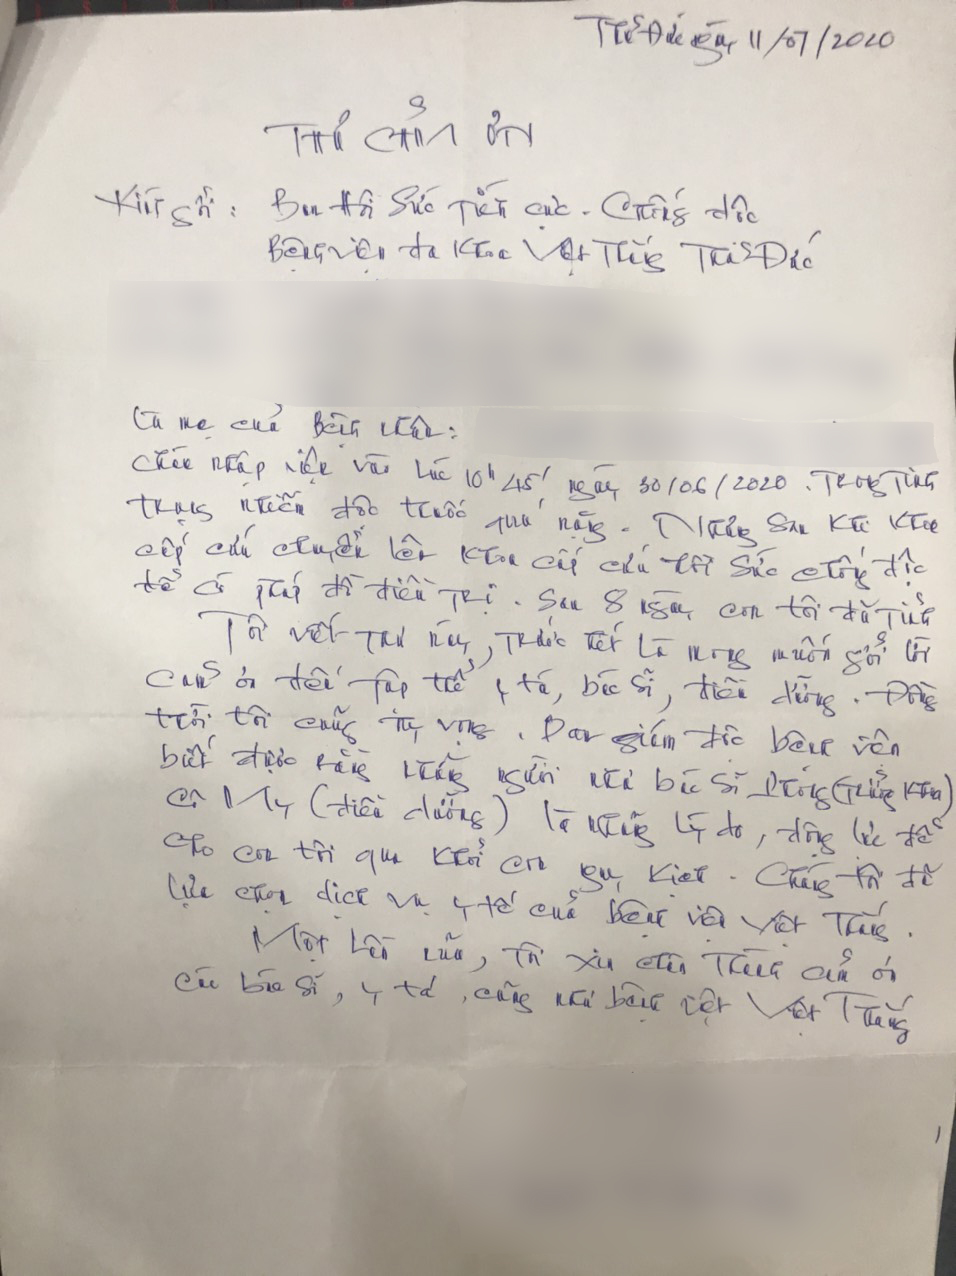 Thủ Đức ngày 11/07/2020
THƯ CẢM ƠN
Kính gửi: Ban Hồi Sức Tích cực - Chống độc
Bệnh viện đa khoa Việt Thắng Thủ Đức
Là mẹ của Bệnh nhân:
Cháu nhập viện vào lúc 10h45', ngày 30/06/2020. Trong Tình
trạng nhiễm độc thuốc quá nặng. Nhưng Sau khi khoa
cấp cứu chuyển lên khoa cấp cứu hồi Sức chống độc
để có pháp đồ điều Trị. Sau 8 ngày con tôi đã Tỉnh
Tôi viết thư này, Trước hết là mong muốn gởi lời
cảm ơn đến Tập thể y tá, bác sĩ, điều dưỡng. Đồng
thời tôi cũng hy vọng. Ban giám đốc bệnh viện
biết được rằng những người như bác sĩ (Trưởng khoa)
Cô My (điều dưỡng) là những lý do, động lực để
cho con tôi qua khỏi cơn nguy kịch. Chúng tôi đã
lựa chọn dịch vụ y tế của bệnh viện Việt Thắng.
Một lần nữa, Tôi xin chân Thành cảm ơn
các bác sĩ, y tá, cũng như bệnh viện Việt Thắng